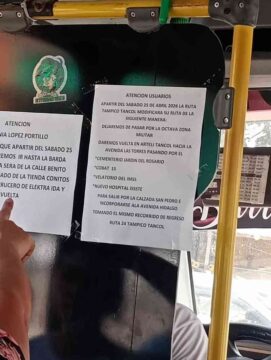 ATENCION
VA LOPEZ PORTILLO
QUE APARTIR DEL SABADO 25
EMOS IR HASTA LA BARDA
A SERA DE LA CALLE BENITO
ADO DE LA TIENDA CONITOS
CRUCERO DE ELEKTRA IDA Y
VUELTA
ATENCION USUARIOS
APARTIR DEL SABADO 25 DE ABRIL 2026 LA RUTA
TAMPICO TANCOL MODIFICARA SU RUTA DE LA
SIGUIENTE MANERA:
DEJAREMOS DE PASAR POR LA OCTAVA ZONA
MILITAR
DAREMOS VUELTA EN ARTELI TANCOL HACIA LA
AVENIDA LAS TORRES PASANDO POR EL
*CEMENTERIO JARDIN DEL ROSARIO
*COBAT 15
*VELATORIO DEL IMSS
*NUEVO HOSPITAL ISSSTE
PARA SALIR POR LA CALZADA SAN PEDRO E
INCORPORARSE ALA AVENIDA HIDALGO
TOMANDO EL MISMO RECORRIDO DE REGRESO
RUTA 24 TAMPICO TANCOL